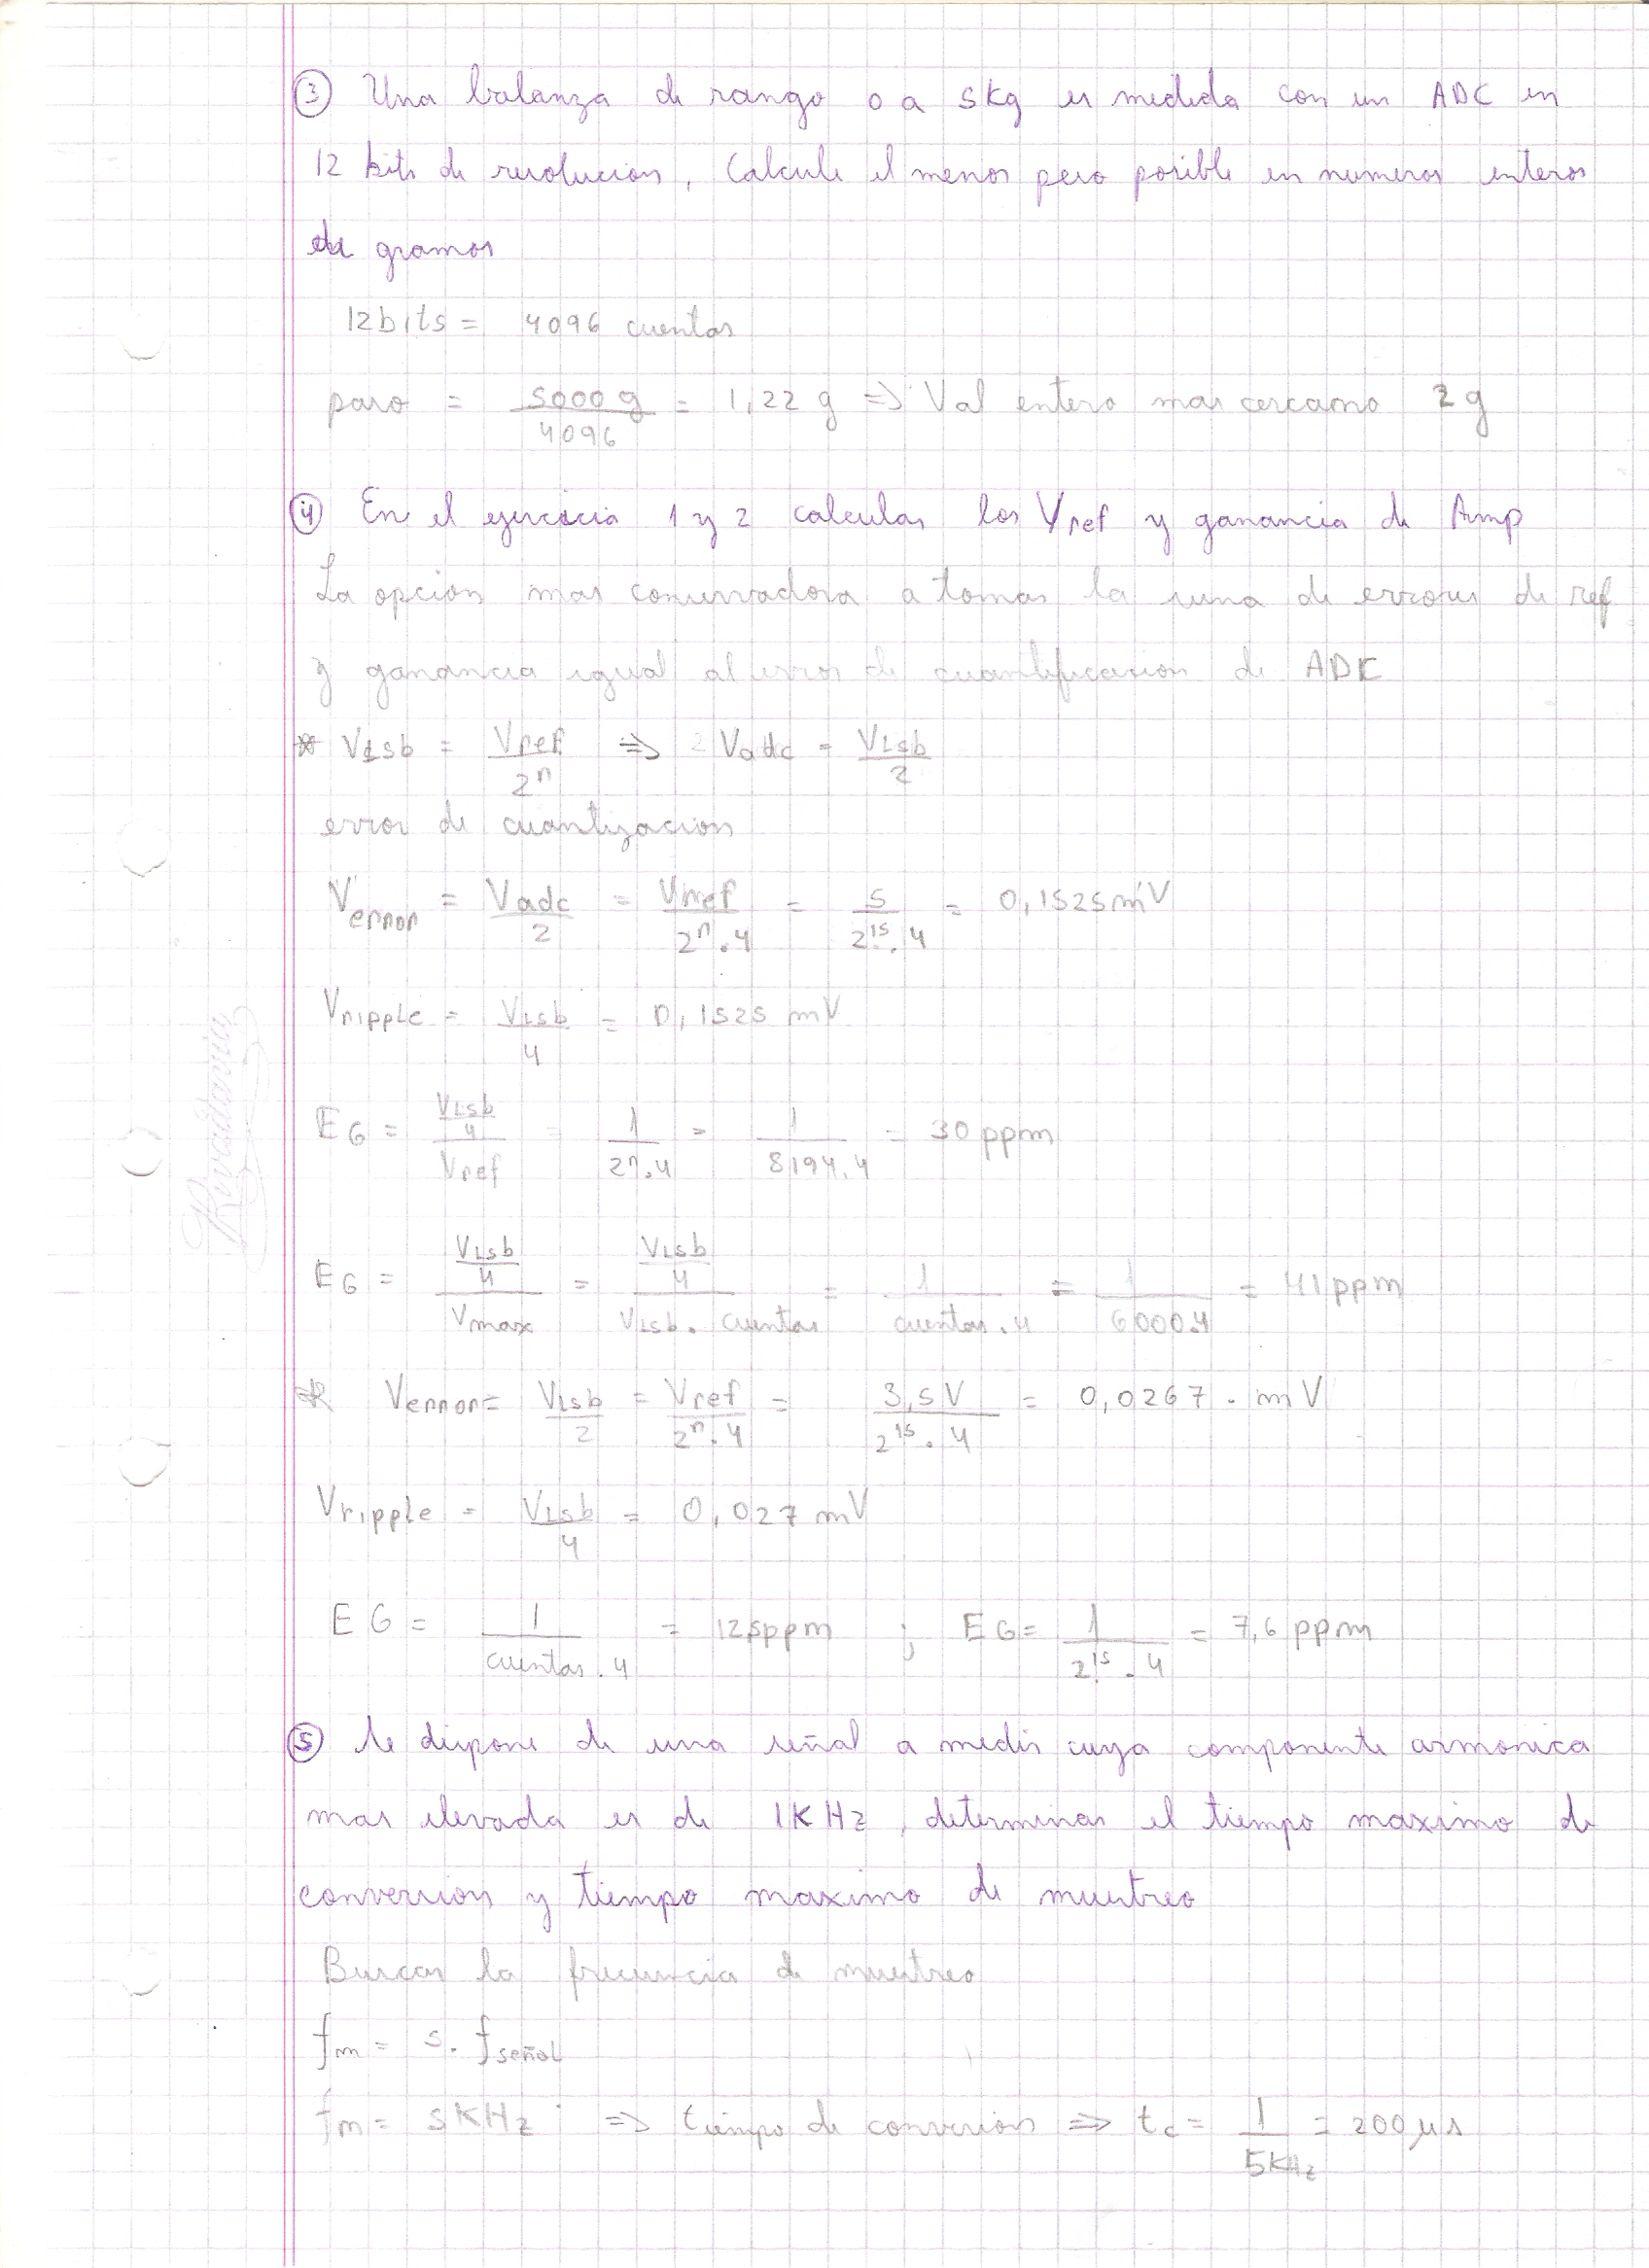 ③ Una balanza de rango 0 a 5Kg es medida con un ADC en
12 bits de resolucion, Calcule el menor peso posible en numeros enteros
de gramos
12bits = 4096 cuentas
paso = 5000g / 4096 = 1,22 g => Val entero mas cercano 2g
④ En el ejercicio 1 y 2 calcular los Vref y ganancia de Amp
La opcion mas conservadora a tomar la suma de errores de ref
y ganancia igual al error de cuantificacion de ADC
* VLsb = Vref / 2^n => 2 Vadc = VLsb / 2
error de cuantizacion
Verror = Vadc / 2 = Vref / 2^n . 4 = 5 / 2^15 . 4 = 0,1525mV
Vripple = VLsb / 4 = 0,1525 mV
EG = (VLsb / 4) / Vref = 1 / 2^n . 4 = 1 / 8194 . 4 = 30ppm
EG = (VLsb / 4) / Vmax = (VLsb / 4) / VLsb . cuentas = 1 / cuentas . 4 = 1 / 6000.4 = 41ppm
* Verror = VLsb / 2 = Vref / 2^n . 4 = 3,5V / 2^15 . 4 = 0,0267 . mV
Vripple = VLsb / 4 = 0,027 mV
EG = 1 / cuentas . 4 = 125ppm ; EG = 1 / 2^15 . 4 = 7,6 ppm
⑤ Se dispone de una señal a medir cuya componente armonica
mas elevada es de 1KHz, determinar el tiempo maximo de
conversion y tiempo maximo de muestreo
Buscar la frecuencia de muestreo
fm = 5 . fseñal
fm = 5KHz => tiempo de conversion => tc = 1 / 5KHz = 200μs
Rivadavia